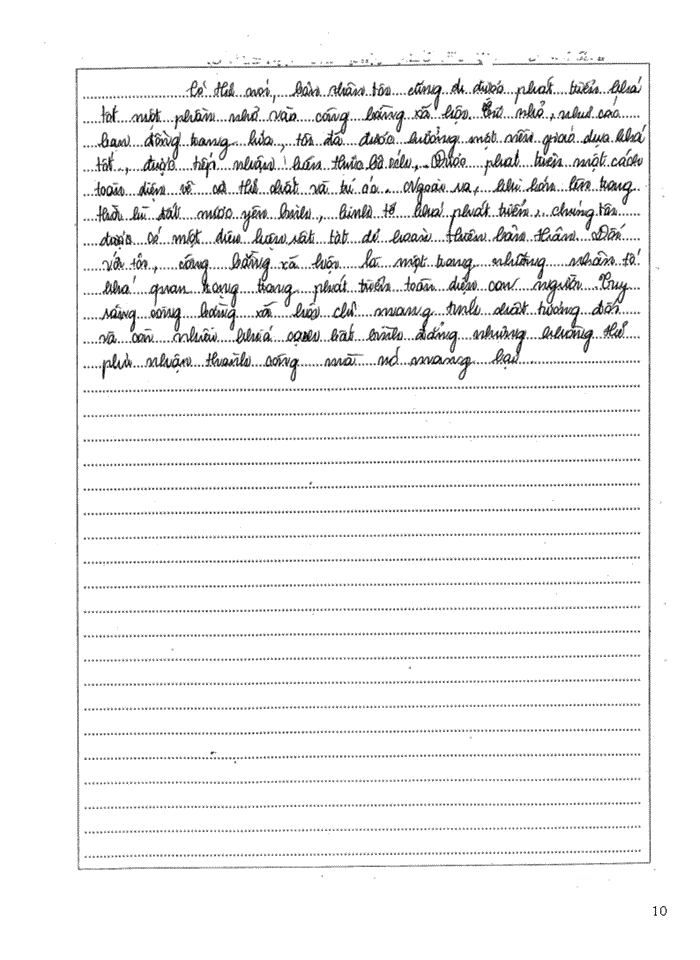 Có thể nói, bản thân tôi cũng đ được phát triển khá
tốt một phần nhờ vào công bằng xã hội. Từ nhỏ, như các
bạn đồng trang lứa, tôi đã được hưởng một nền giáo dục khá
tốt, được tiếp nhận kiến thức bổ ích, được phát triển một cách
toàn diện về cả thể chất và trí óc. Ngoài ra, khi lớn lên trong
thời kì đất nước yên bình, kinh tế khá phát triển, chúng tôi
được có một điều kiện rất tốt để hoàn thiện bản thân. Đối
với tôi, công bằng xã hội là một trong những nhân tố
khá quan trọng trong phát triển toàn diện con người. Tuy
rằng công bằng xã hội chỉ mang tính chất tương đối
và còn nhiều khía cạnh bất bình đẳng nhưng không thể
phủ nhận thành công mà nó mang lại
10